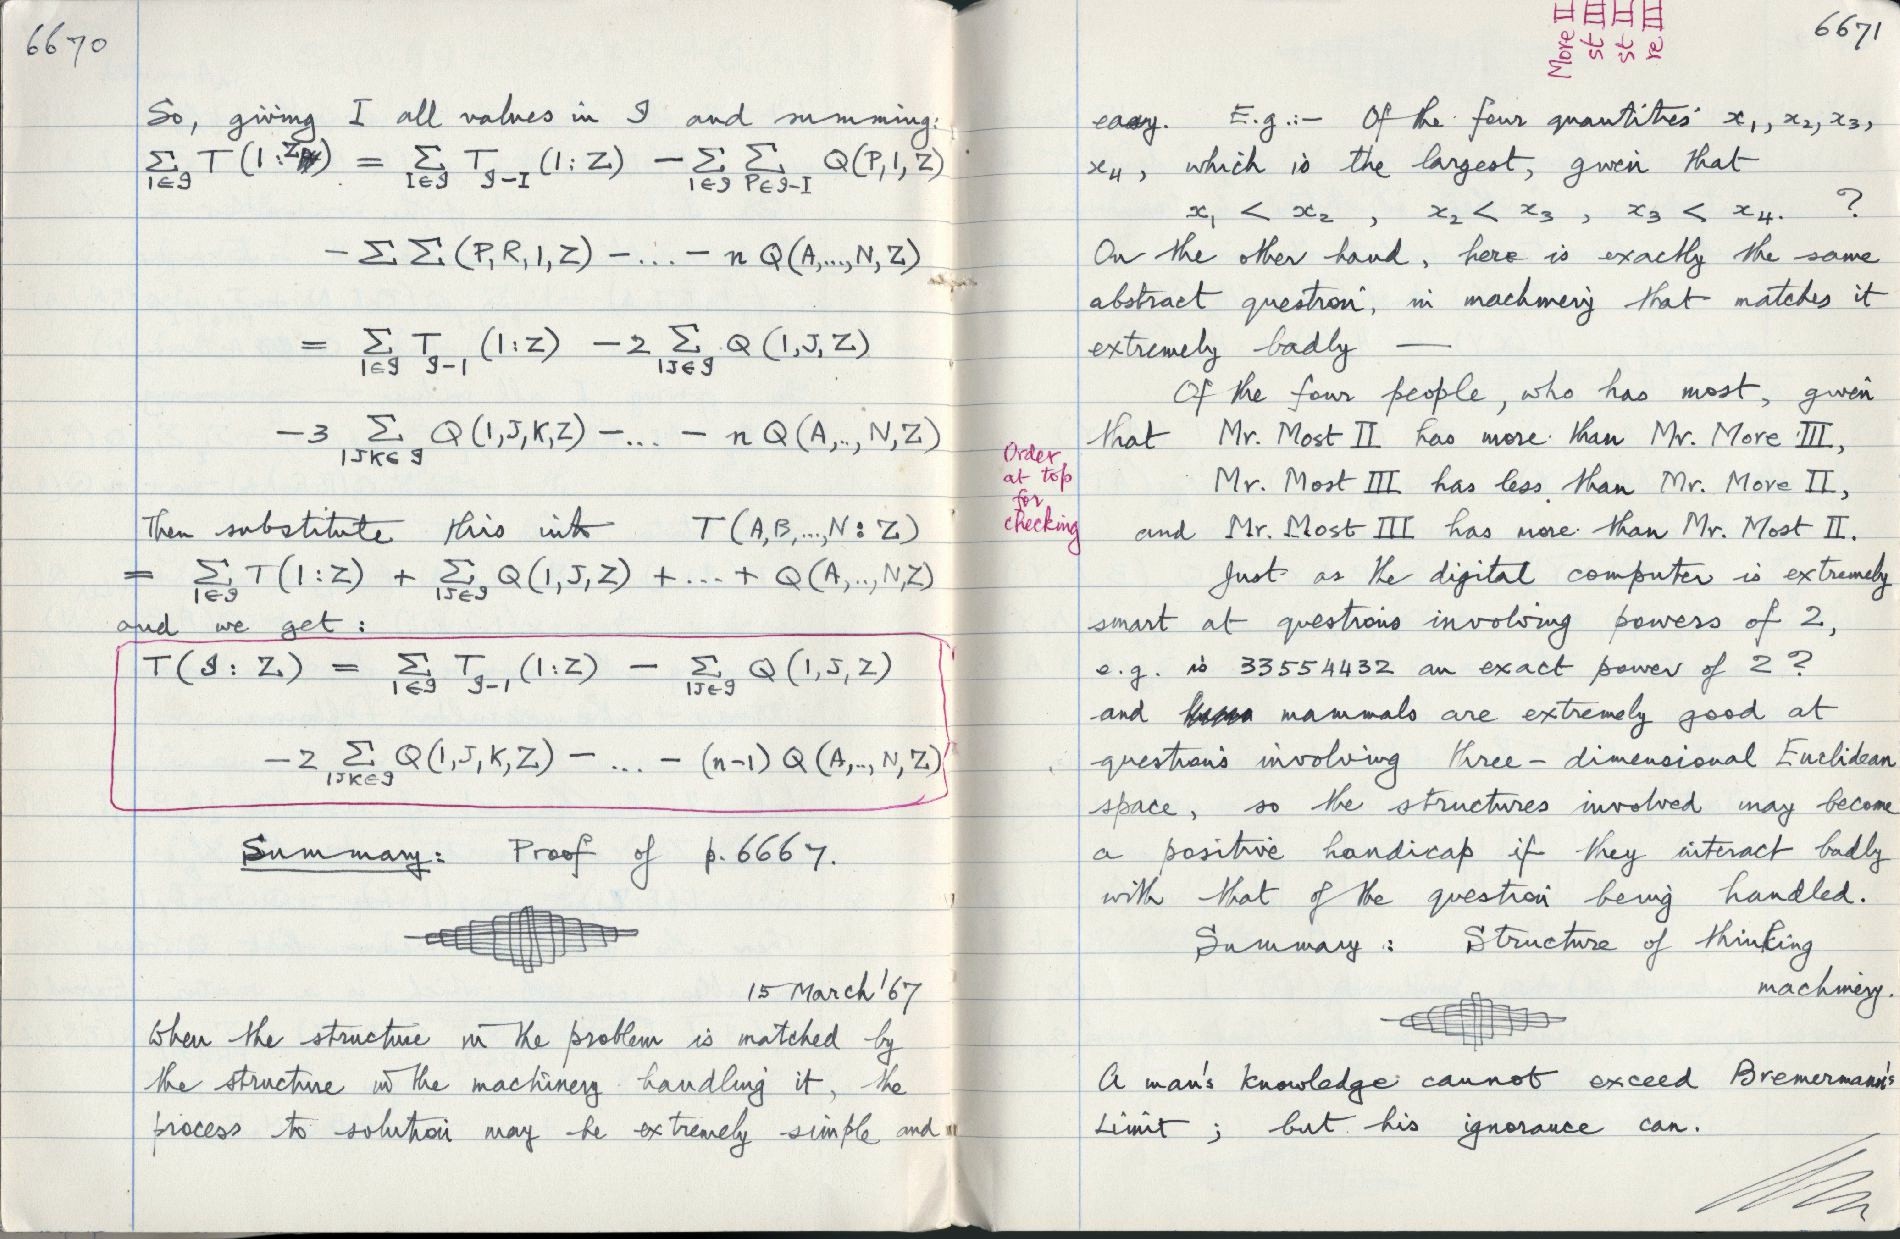 6670
So, giving I all values in 𝓘 and summing:
Σ_{I∈𝓘} T(I:Z) = Σ_{I∈𝓘} T_{𝓘-I} (I:Z) - Σ_{I∈𝓘} Σ_{P∈𝓘-I} Q(P,I,Z)
- Σ Σ (P,R,I,Z) - ... - n Q(A,...,N,Z)
= Σ_{I∈𝓘} T_{𝓘-I} (I:Z) - 2 Σ_{IJ∈𝓘} Q(I,J,Z)
- 3 Σ_{IJK∈𝓘} Q(I,J,K,Z) - ... - n Q(A,..,N,Z)
Then substitute this into T(A,B,...,N:Z)
= Σ_{I∈𝓘} T(I:Z) + Σ_{IJ∈𝓘} Q(I,J,Z) + ... + Q(A,..,N,Z)
and we get:
T(𝓘:Z) = Σ_{I∈𝓘} T_{𝓘-I} (I:Z) - Σ_{IJ∈𝓘} Q(I,J,Z)
- 2 Σ_{IJK∈𝓘} Q(I,J,K,Z) - ... - (n-1) Q(A,..,N,Z)
Summary: Proof of p.6667.
15 March '67
When the structure in the problem is matched by
the structure in the machinery handling it, the
process to solution may be extremely simple and
6671
More II
st III
st II
re III
easy. E.g.:- Of the four quantities x₁, x₂, x₃,
x₄, which is the largest, given that
x₁ < x₂ , x₂ < x₃ , x₃ < x₄. ?
On the other hand, here is exactly the same
abstract question, in machinery that matches it
extremely badly —
Of the four people, who has most, given
that Mr. Most II has more than Mr. More III,
Mr. Most III has less than Mr. More II,
and Mr. Most III has more than Mr. Most II.
Order
at top
for
checking
Just as the digital computer is extremely
smart at questions involving powers of 2,
e.g. is 33554432 an exact power of 2?
and mammals are extremely good at
questions involving three-dimensional Euclidean
space, so the structures involved may become
a positive handicap if they interact badly
with that of the question being handled.
Summary: Structure of thinking
machinery.
A man's knowledge cannot exceed Bremermann's
Limit; but his ignorance can.